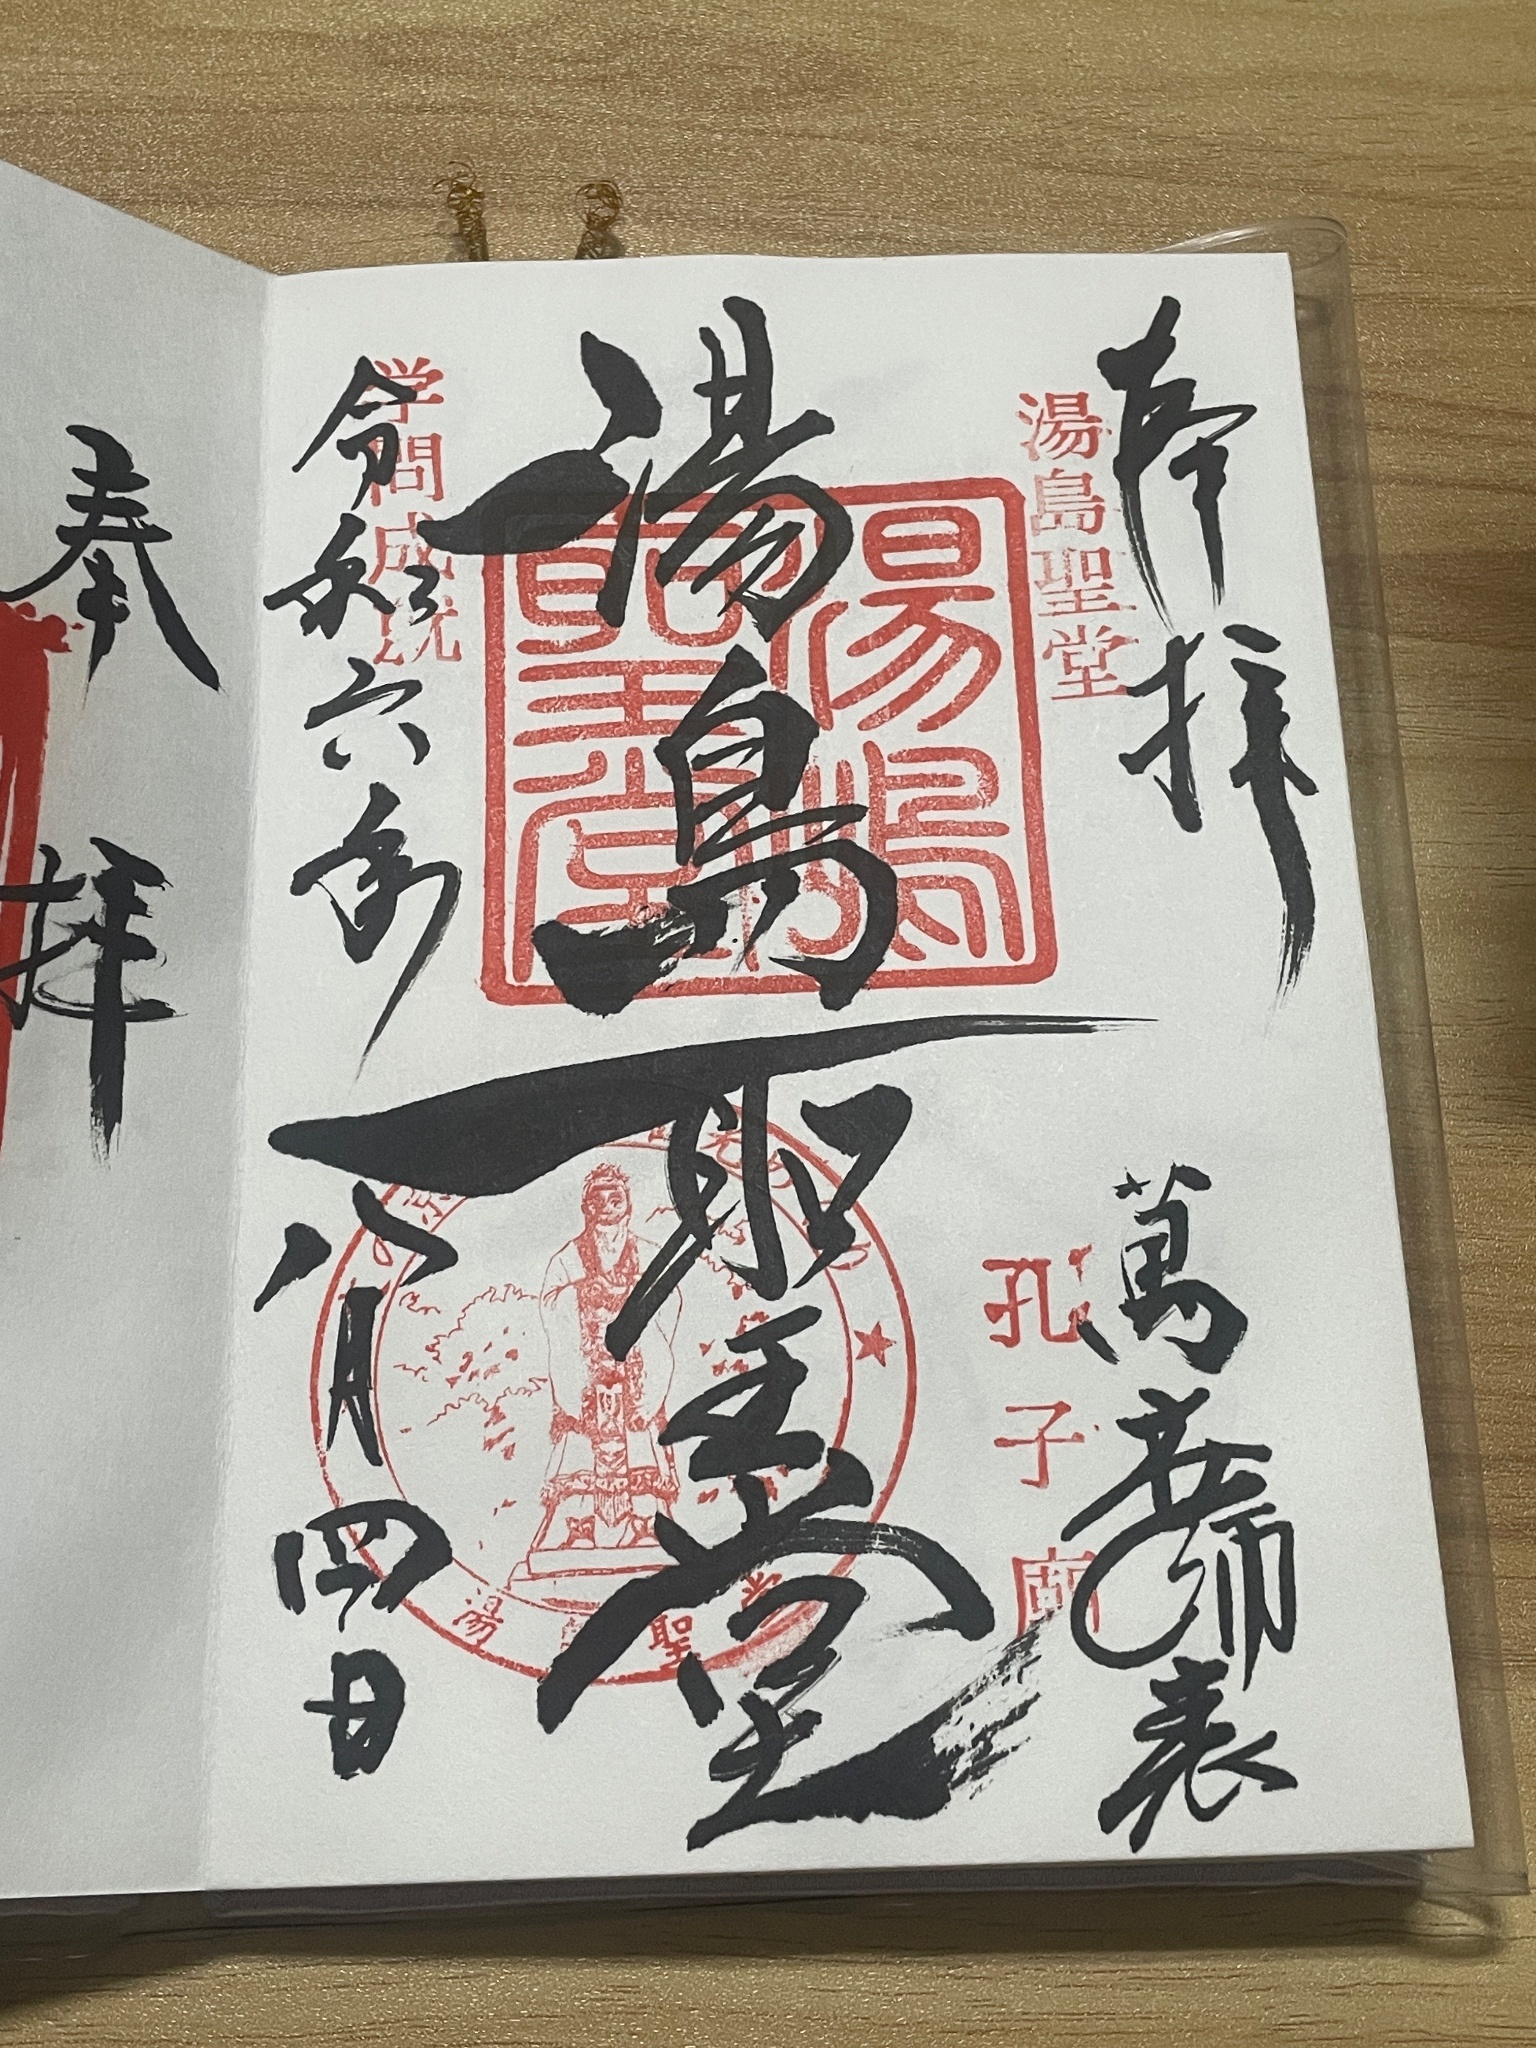 奉拝
萬世師表
湯島聖堂
孔子廟
湯島聖堂
湯島聖堂
湯島聖堂
学問成就
令和六年
八月四日
奉拝